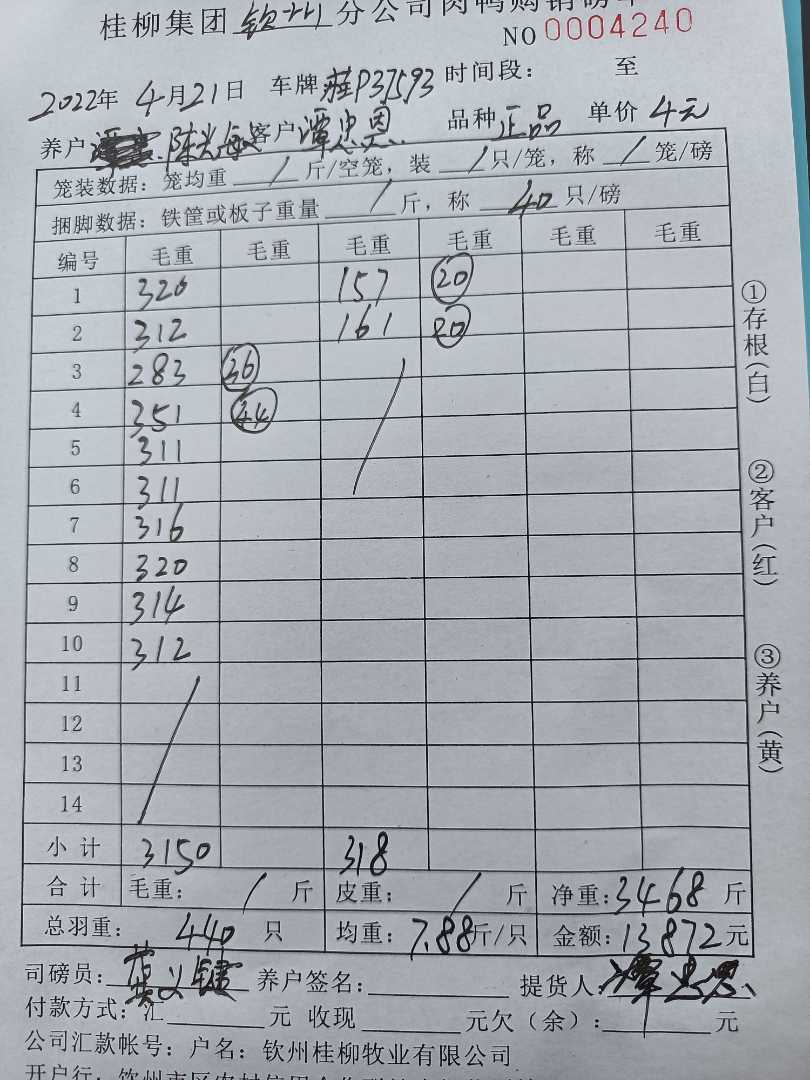 桂柳集团 钦州 分公司肉鸭购销磅单
NO 0004240
2022年 4月21日 车牌 桂P37593 时间段： 至
养户 陈光 客户 谭忠恩 品种 正品 单价 4元
笼装数据：笼均重 / 斤/空笼，装 / 只/笼，称 / 笼/磅
捆脚数据：铁筐或板子重量 / 斤，称 40 只/磅
编号 毛重 毛重 毛重 毛重 毛重 毛重
1 320 157 20
2 312 161 20
3 283 36
4 351 44
5 311
6 311
7 316
8 320
9 314
10 312
11
12
13
14
小计 3150 318
合计 毛重： / 斤 皮重： / 斤 净重：3468 斤
总羽重： 440 只 均重：7.88斤/只 金额：13872元
司磅员：黄义键 养户签名： 提货人：谭忠恩
付款方式：汇 元 收现 元欠（余）： 元
公司汇款帐号：户名：钦州桂柳牧业有限公司
开户行：钦州市区农村信用合作联社
①存根（白）
②客户（红）
③养户（黄）